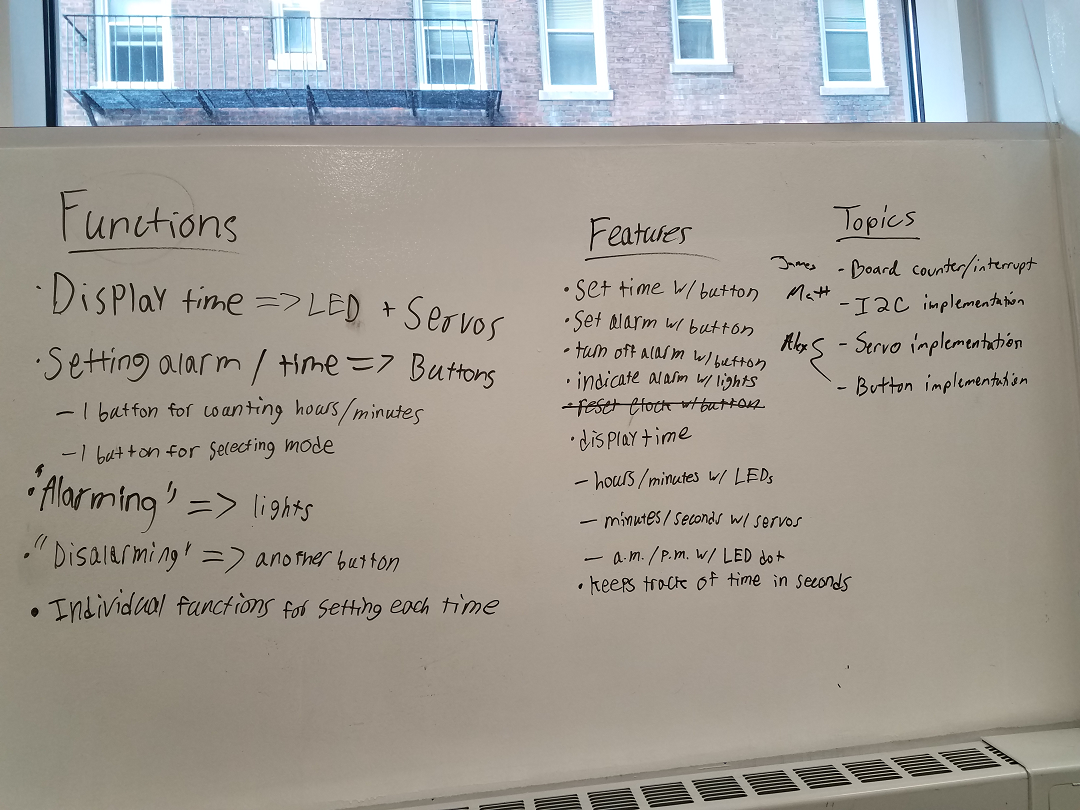 Functions
• Display time => LED + Servos
• Setting alarm / time => Buttons
– 1 button for counting hours/minutes
– 1 button for selecting mode
• "Alarming" => lights
• "Disalarming" => another button
• Individual functions for setting each time
Features
• Set time w/ button
• Set alarm w/ button
• turn off alarm w/ button
• indicate alarm w/ lights
• reset clock w/ button
• display time
– hours/minutes w/ LEDs
– minutes/seconds w/ servos
– a.m./p.m. w/ LED dot
• keeps track of time in seconds
Topics
James - Board counter/interrupt
Matt - I2C implementation
Alex - Servo implementation
- Button implementation